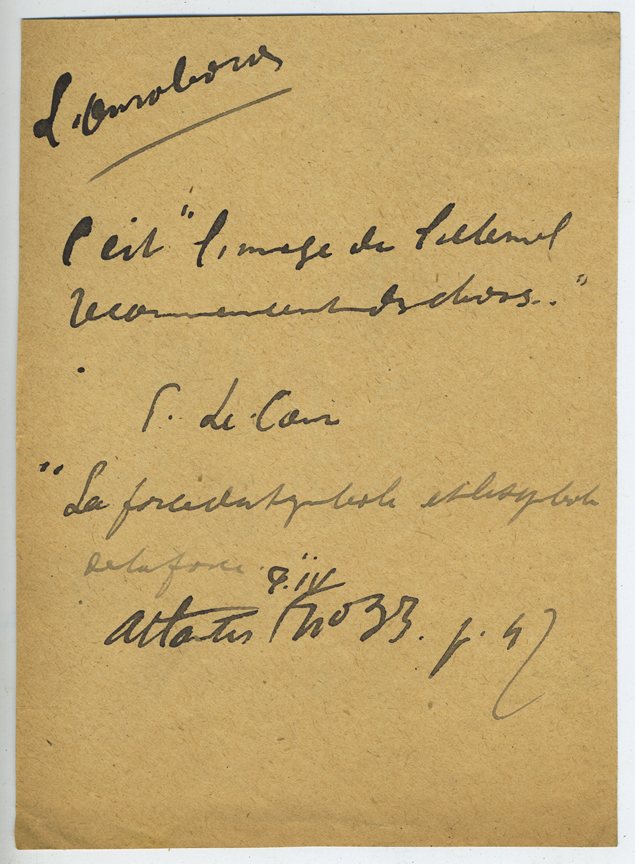 L'Ouroboros
C'est "l'image de l'éternel
recommencement des choses..."
P. Le Cour
"La force du symbole et le symbole
de la force"
T. IV
Atlantis (no 33. p. 47)